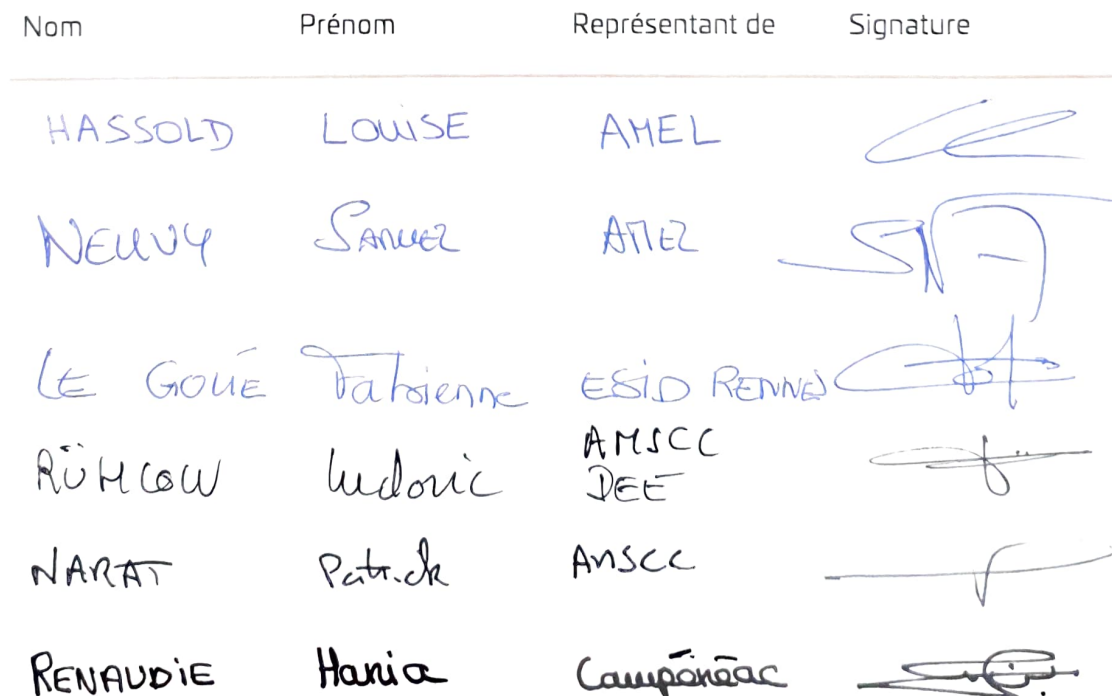 Nom Prénom Représentant de Signature
HASSOLD LOUISE AMEL
NEUVY SAMUEL AMEL
LE GOUÉ Fabienne ESID RENNES
RÜMCOW Ludovic AMSCC
DEE
NARAT Patrick AMSCC
RENAUDIE Hania Campénéac